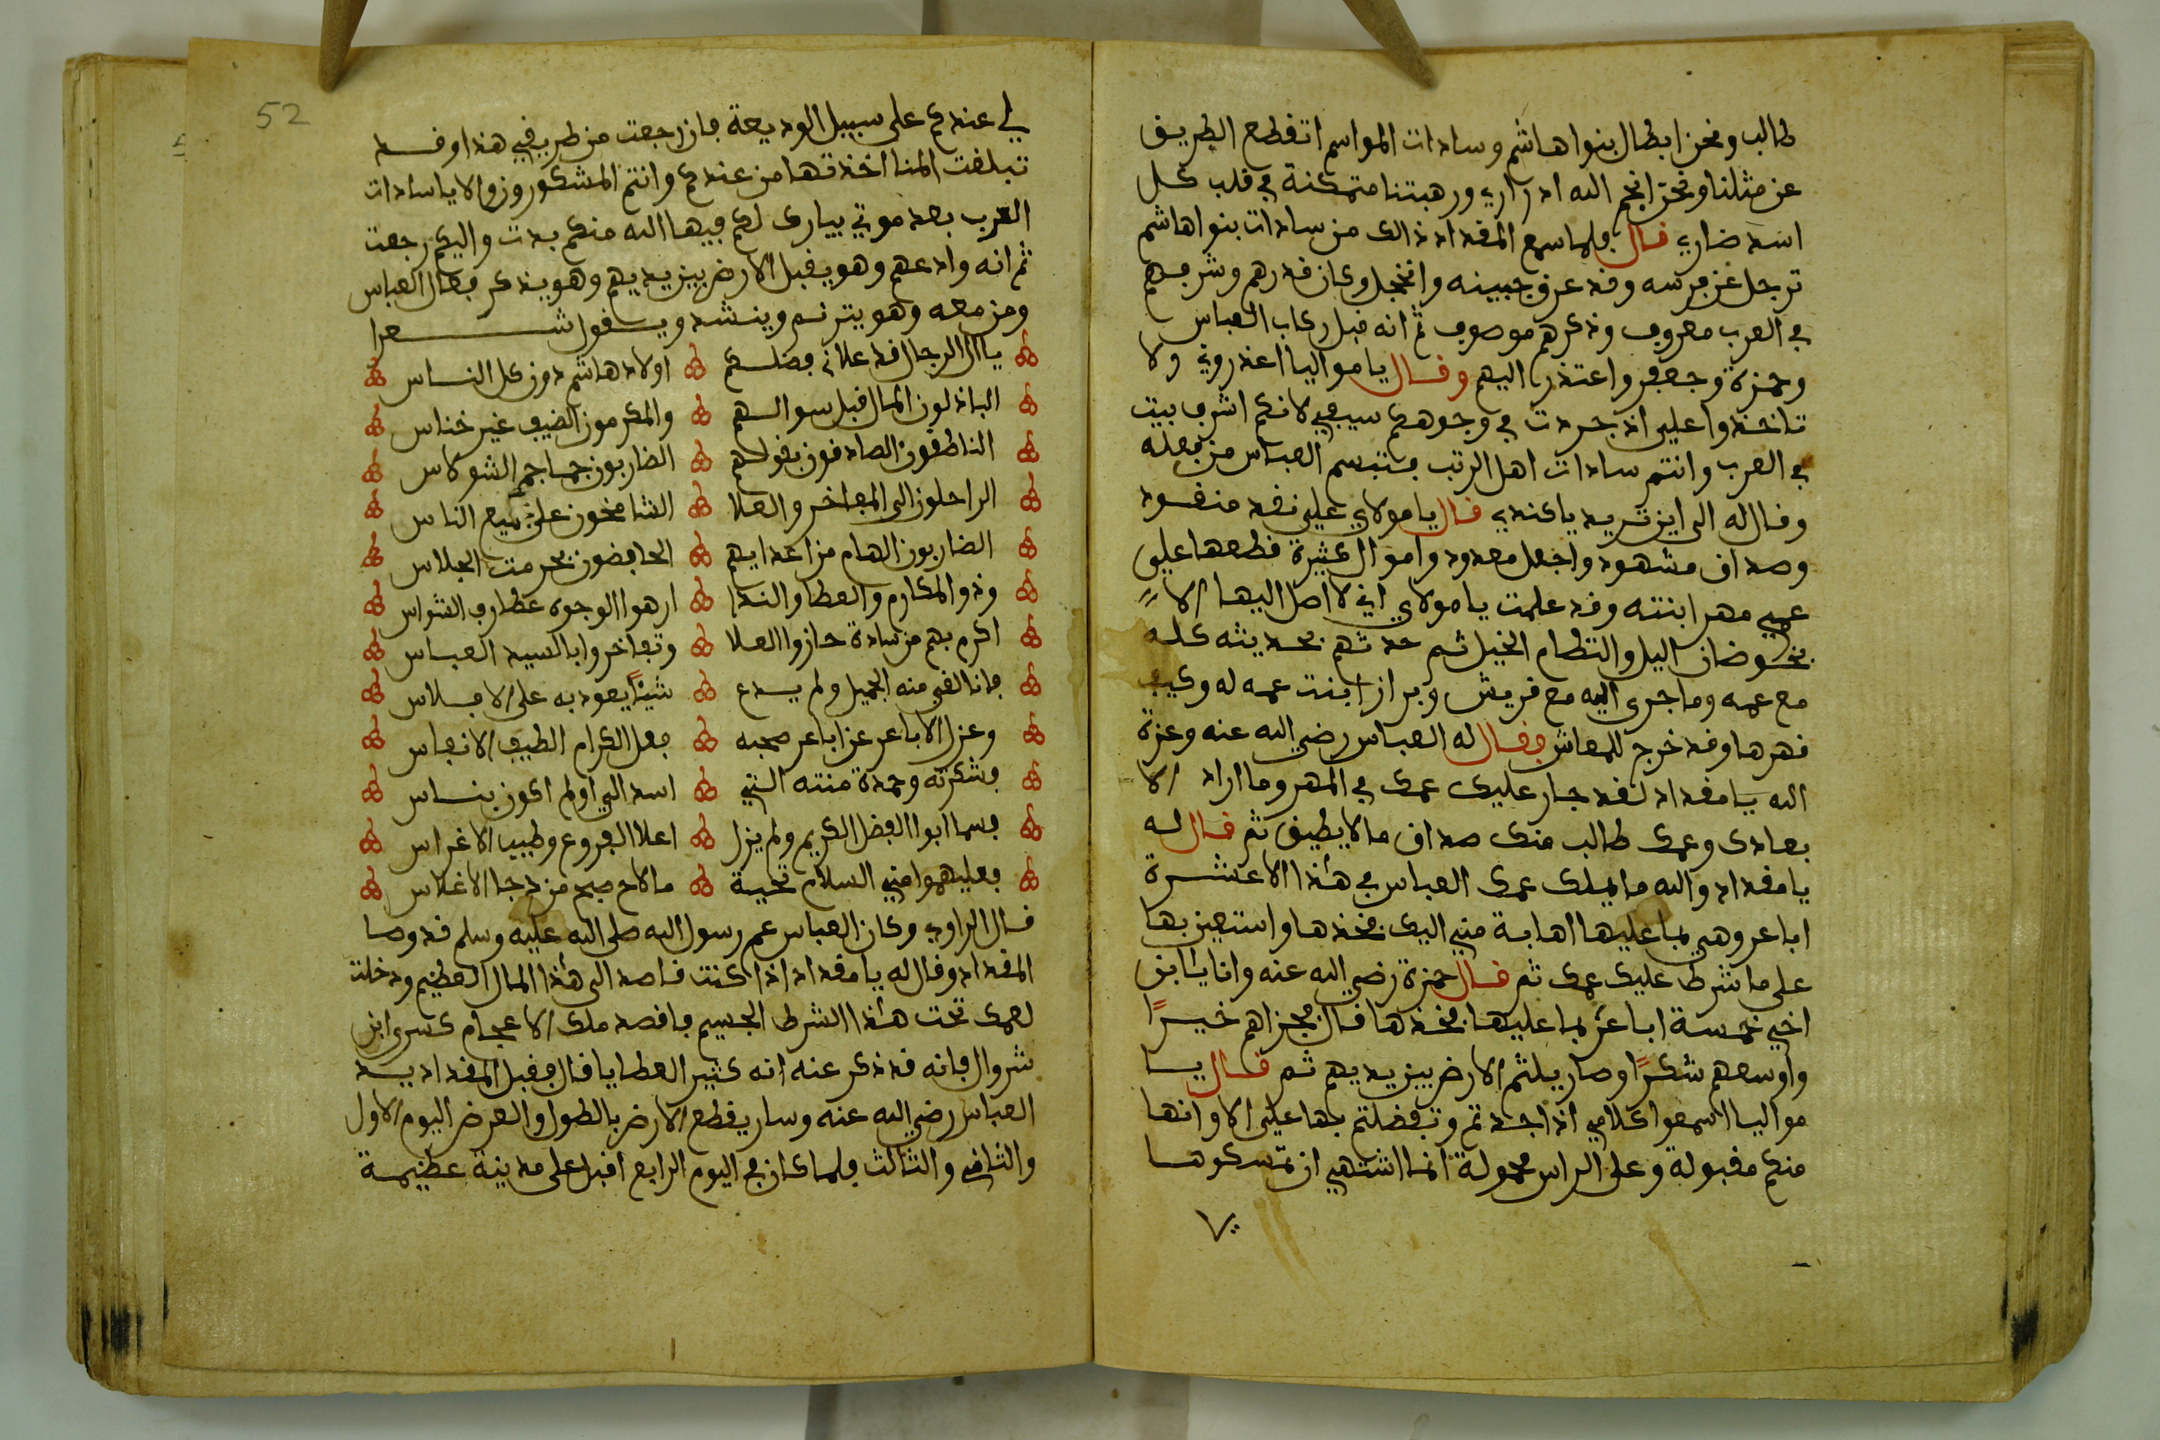 طالب ونحن ابطال بنوا هاشم وسادات المواسم اتقطع الطريق
عن مثلنا ونحن انجم الله ادراري ورهبتنا متمكنة في قلب كل
اسد ضاري قال فلما سمع المقداد ذالك من سادات بنوا هاشم
ترجل عن فرسه وقد عرق جبينه وانخجل وكان قدرهم وشرفهم
في العرب معروف وذكرهم موصوف ثم انه قبل ركاب العباس
وحمزة وجعفر واعتذر اليهم وقال يا مواليا اعذروني ولا
تاخذوا علي اذ جردت في وجوهكم سيفي لانكم اشرف بيت
في العرب وانتم سادات اهل الرتب فتبسم العباس من فعله
وقال له الى اين تريد يا كندي قال يا مولاي علي نقد منقود
وصداق مشهود واجعل معدود واموال كثيرة قطعها علي
عمي مهر ابنته وقد علمت يا مولاي اني لا اصل اليها الا
بخوضان اليل والتطام الخيل ثم حدثهم بحديثه كله
مع عمه وما جرى اليه مع قريش وبراز ابنت عمه له وكيف
قهرها وقد خرج للمعاش فقال له العباس رضي الله عنه وعزة
الله يا مقداد لقد جار عليك عمك في المهر وما اراد الا
بعادك وعمك طالب منك صداق ما لا يطيق ثم قال له
يا مقداد والله ما يملك عمك العباس في هذا الا عشرة
اباعر وهي بما عليها اهابة مني اليك فخذها واستعين بها
على ما شرط عليك عمك ثم قال حمزة رضي الله عنه وانا يا ابن
اخي خمسة اباعر بما عليها فخذها قال فجزاهم خيرًا
واوسعهم شكرًا وصار يلثم الارض بين يديهم ثم قال يا
مواليا اسمعوا كلامي اذا جدتم وتفضلتم بها علي الا وانها
منكم مقبولة وعلى الراس محمولة انما اشتهي ان تمسكوها
٧٠
52
لي عندكم على سبيل الوديعة فان رجعت من طريقي هذا وقد
تبلغت المنا اخذتها من عندكم وانتم المشكورون والا يا سادات
العرب بعد موتي يبارك لكم فيها الله منكم بدت واليكم رجعت
ثم انه وادعهم وهو يقبل الارض بين يديهم وهو يذكر فعال العباس
ومن معه وهو يترنم وينشد ويقول شعرا
يا ال الرجال قد علاني فضلكم اولاد هاشم دون كل الناس
الباذلون المال قبل سوالهم والمكرمون الضيف غير خناس
الناطقون الصادقون بقولهم الضاربون جماجم الشوكاس
الراحلون الى المفاخر والعلا الشامخون على جميع الناس
الضاربون الهام من اعدايهم الحافضون بحرمت الجلاس
وذو المكارم والعطا والندا ازهوا الوجوه عطارف الشواس
اكرم بهم من سادة حازوا العلا وتفاخروا بالسيد العباس
فانا لقي منه الجميل ولم يدع شيئًا يعود به على الافلاس
وعزل الاباعر عن اباعر صحبه فعل الكرام الطيب الانفاس
فشكرته وحمدة منته التي اسدا الي اولم اكون بناس
فسما ابوا الفضل الكريم ولم يزل اعلا الفروع وطيب الاغراس
فعليهموا مني السلام تحية ما لاح صبح من دجا الاغلاس
قال الراوي وكان العباس عم رسول الله صلى الله عليه وسلم قد وصا
المقداد وقال له يا مقداد اذا كنت قاصد الى هذا المال العظيم ودخلت
لعمك تحت هذا الشرط الجسيم فاقصد ملك الاعجام كسرى ابن
شروال فانه قد ذكر عنه انه كثير العطايا قال فقبل المقداد يد
العباس رضي الله عنه وسار يقطع الارض بالطول والعرض اليوم الاول
والثاني والثالث فلما كان في اليوم الرابع اقبل على مدينة عظيمة